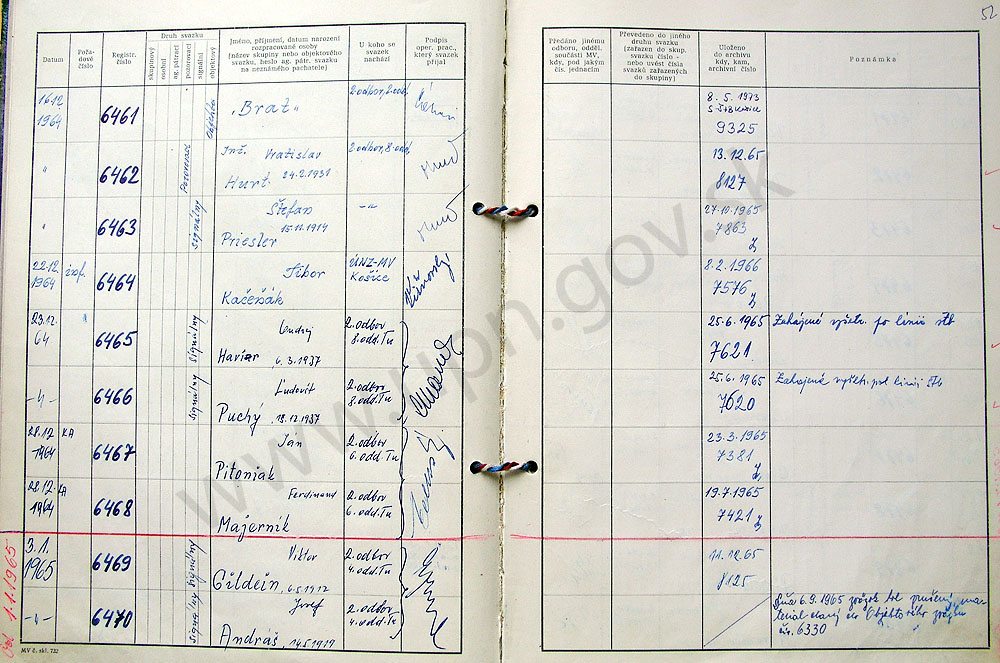 52
Datum
Pořa-
dové
číslo
Registr.
číslo
Druh svazku
skupinový
osobní
ag. pátrací
pozorovací
signální
objektový
Jméno, příjmení, datum narození
rozpracované osoby
(název skupiny nebo objektového
svazku, heslo ag. pátr. svazku
na neznámého pachatele)
U koho se
svazek
nachází
Podpis
oper. prac.,
který svazek
přijal
Předáno jinému
odboru, odděl.
součásti MV,
kdy, pod jakým
čís. jednacím
Převedeno do jiného
druhu svazku
(zařazen do skup.
svazku číslo -
nebo uvést čísla
svazků zařazených
do skupiny)
Uloženo
do archivu
kdy, kam,
archivní číslo
Poznámka
16.12.
1964
6461
"Brat"
2 odbor, 2. odd.
8. 5. 1973
9325
"
6462
Pozorovací
Inž. Vratislav
Hurt 24.2.1931
2 odbor, 8. odd.
13. 12. 65
8127
"
6463
signálny
Štefan
15.11.1914
Priesler
-"-
27.10.1965
7863
22.12.
1964
6464
Tibor
Kačeňák
ÚNZ-MV
Košice
8.2.1966
7576
23.12.
64
6465
signálny
Haviar 6.3.1937
2. odbor
8. odd. Tu
25.6.1965
7621
Zahájené vyšetr. po linii ŠtB
-"-
6466
signálny
Ľudovít
Puchý 18.12.1937
2. odbor
8. odd. Tu
25.6.1965
7620
28.12.
1964
KA
6467
Ján
Pitoniak
2. odbor
6. odd. Tu
23.3.1965
7381
28.12.
1964
KA
6468
Ferdinand
Majerník
2. odbor
6. odd. Tu
19.7.1965
7421
1.1.1965
3.1.
1965
6469
signálny
Viktor
Gildein, 6.5.1912
2. odbor
4. odd. Tu
11.12.65
8125
-"-
6470
signálny
Jozef
Andráš, 14.5.1919
2. odbor
4. odd. Tu
Dňa 6.9.1965 zväzok bol zrušený, ma-
teriál daný do Objektového zväzku
čís. 6330
MV č. skl. 732
www.upn.gov.sk